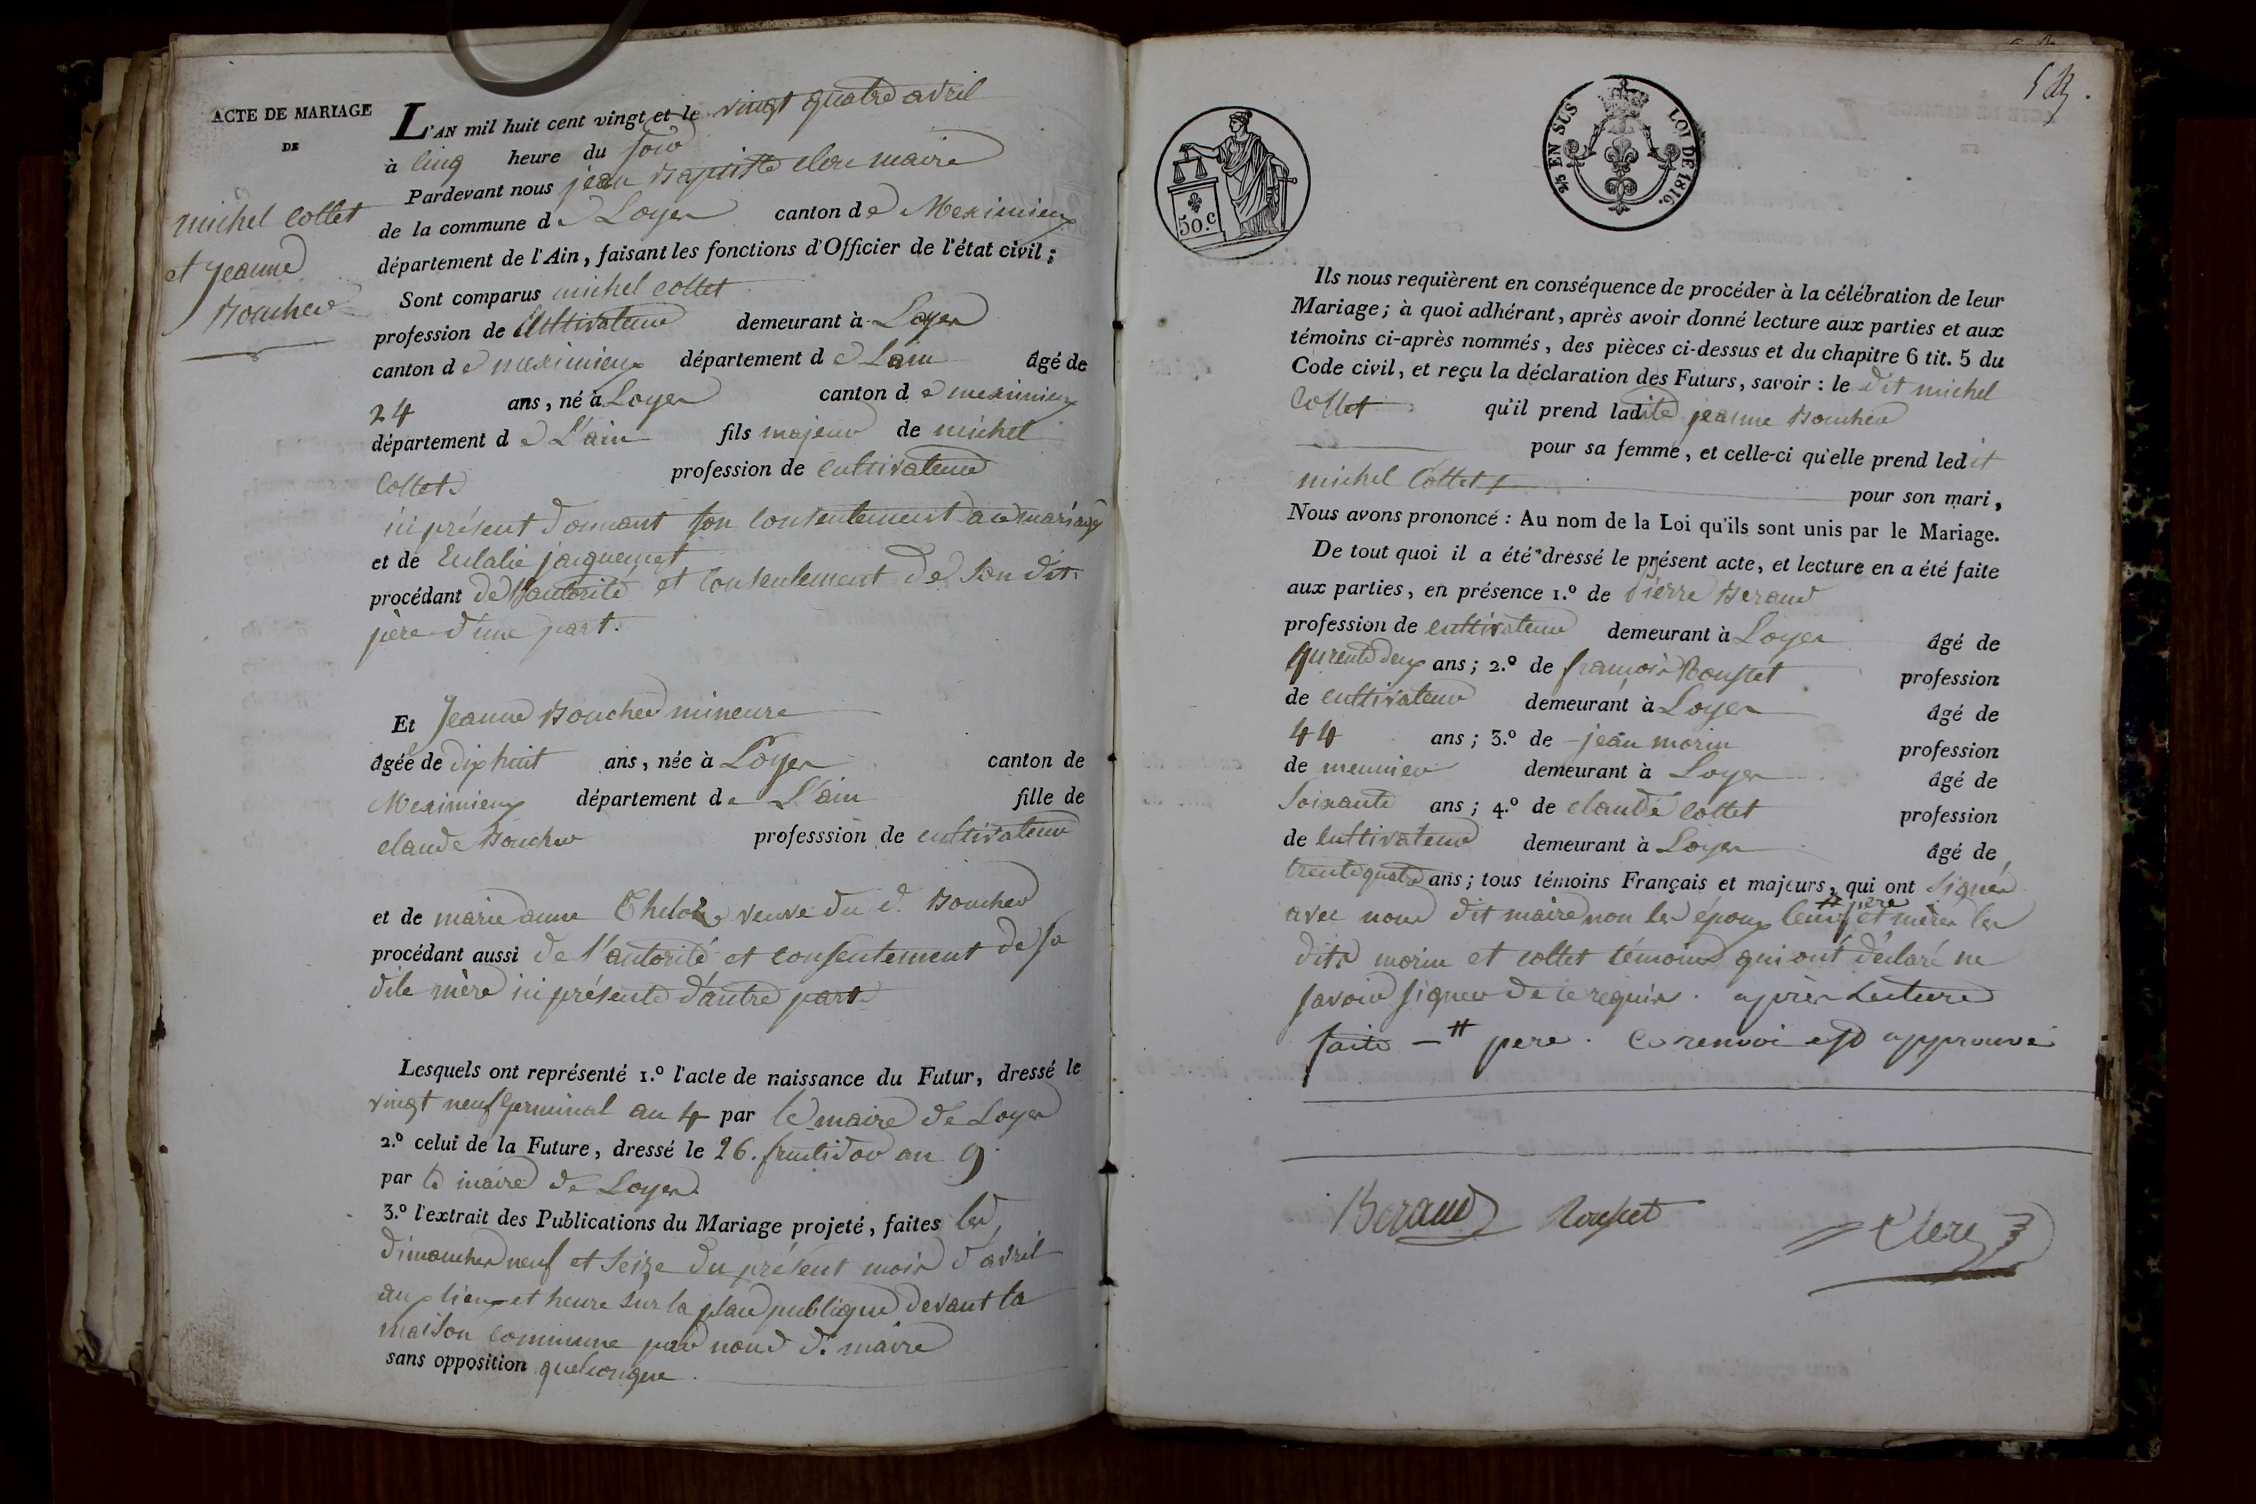 ACTE DE MARIAGE
DE
michel Collet
et jeanne
Boucher
L'AN mil huit cent vingt et le vingt quatre avril
à Cinq heure du soir
Pardevant nous jean Baptiste Clerc maire
de la commune de Loyes canton de Meximieux
département de l'Ain, faisant les fonctions d'Officier de l'état civil;
Sont comparus michel Collet
profession de Cultivateur demeurant à Loyes
canton de meximieux département de Lain âgé de
24 ans, né à Loyes canton de meximieux
département de L'ain fils majeur de michel
Collet profession de cultivateur
ici présent donnant son consentement à ce mariage
et de Eulalie jacquemet
procédant de l'autorité et Consentement de son dit
père d'une part.
Et Jeanne Boucher mineure
âgée de dix huit ans, née à Loyes canton de
Meximieux département de L'ain fille de
claude Boucher professsion de cultivateur
et de marie anne veuve du d. Boucher
procédant aussi de l'autorité et consentement de sa
dite mère ici présente d'autre part
Lesquels ont représenté 1.º l'acte de naissance du Futur, dressé le
vingt neuf Germinal an 4 par le maire de Loyes
2.º celui de la Future, dressé le 26. fructidor an 9.
par le maire de Loyes
3.º l'extrait des Publications du Mariage projeté, faites les
dimanches neuf et seize du présent mois d'avril
aux lieux et heure sur la place publique devant la
maison commune par nous d. maire
sans opposition quelconque.
50.c
25 EN SUS LOI DE 1816.
Ils nous requièrent en conséquence de procéder à la célébration de leur
Mariage; à quoi adhérant, après avoir donné lecture aux parties et aux
témoins ci-après nommés, des pièces ci-dessus et du chapitre 6 tit. 5 du
Code civil, et reçu la déclaration des Futurs, savoir: le dit michel
Collet qu'il prend ladite jeanne Boucher
pour sa femme, et celle-ci qu'elle prend ledit
michel Collet pour son mari,
Nous avons prononcé: Au nom de la Loi qu'ils sont unis par le Mariage.
De tout quoi il a été dressé le présent acte, et lecture en a été faite
aux parties, en présence 1.º de pierre Beraud
profession de cultivateur demeurant à Loyes âgé de
qurente deux ans; 2.º de françois Rousset profession
de cultivateur demeurant à Loyes âgé de
44 ans; 3.º de jean morin profession
de meunier demeurant à Loyes âgé de
soixante ans; 4.º de claude Collet profession
de Cultivateur demeurant à Loyes âgé de
trente quatre ans; tous témoins Français et majeurs, qui ont signés
avec nous dit maire non les époux leurs # père et mères les
dits morin et collet témoins qui ont déclaré ne
savoir signer de ce requis. après Lecture
faite — # pere. Ce renvoi est approuvé
Beraud Rousset Clerc